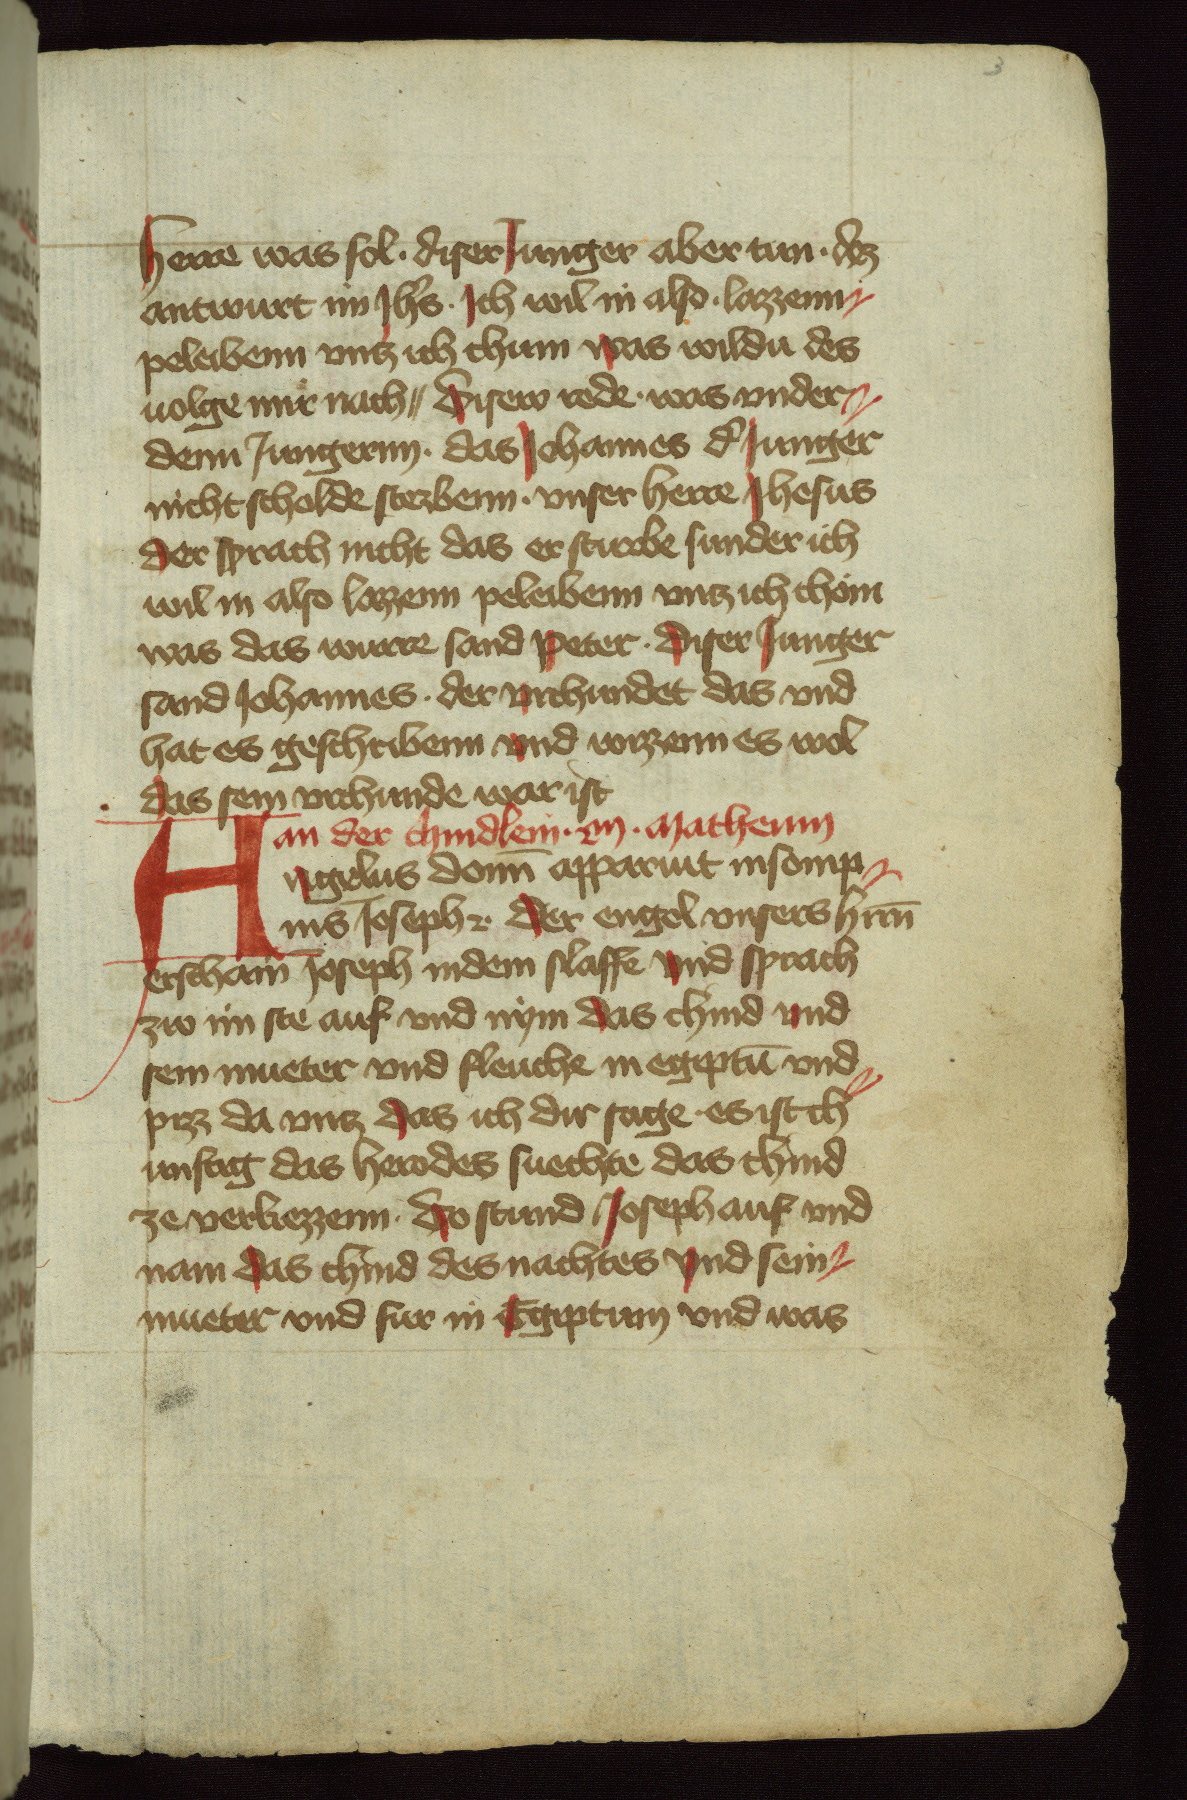 3
Herre was sol · diser Junger aber tun · dez
antwurt im Jhs̄ · Ich wil in also · lazzenn
peleibenn vntz ich chum was wildu des
uolge mir nach // Disew rede · was vnder
denn Jungernn · das Johannes d' Junger
nicht scholde sterbenn · vnser herre Jhesus
der sprach nicht das er sturbe sunder ich
wil in also lazzenn peleibenn vntz ich chöm
was das wurre sand peter · diser Junger
sand Johannes · der vrchundet das vnd
hat es geschribenn vnd wizzenn es wol
das sein vrchunde war ist
an der chindlein · m · Matheum
Angelus domī apparuit in somp
nis Joseph · der engel vnsers hrnn̄
erscham Joseph in dem slaffe vnd sprach
zw im ste auf vnd nym das chind vnd
sein mueter vnd fleuche in egiptū vnd
piz da vntz das ich dir sage · es ist ch
unftig das herodes suechte das chind
ze verliezzenn · do stund Joseph auf vnd
nam das chind des nachtes vnd sein
mueter vnd fur in Egiptum vnd was